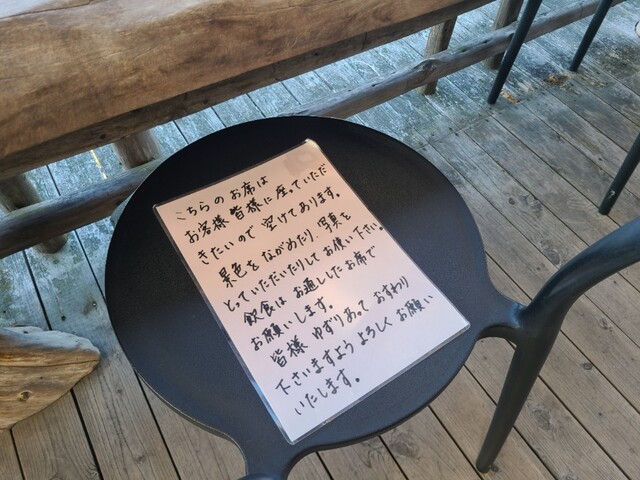 こちらのお席は
お客様皆様に座っていただ
きたいので空けてあります。
景色をながめたり、写真を
とっていただいたりしてお使い下さい。
飲食はお通ししたお席で
お願いします。
皆様ゆずりあっておすわり
下さいますようよろしくお願い
いたします。